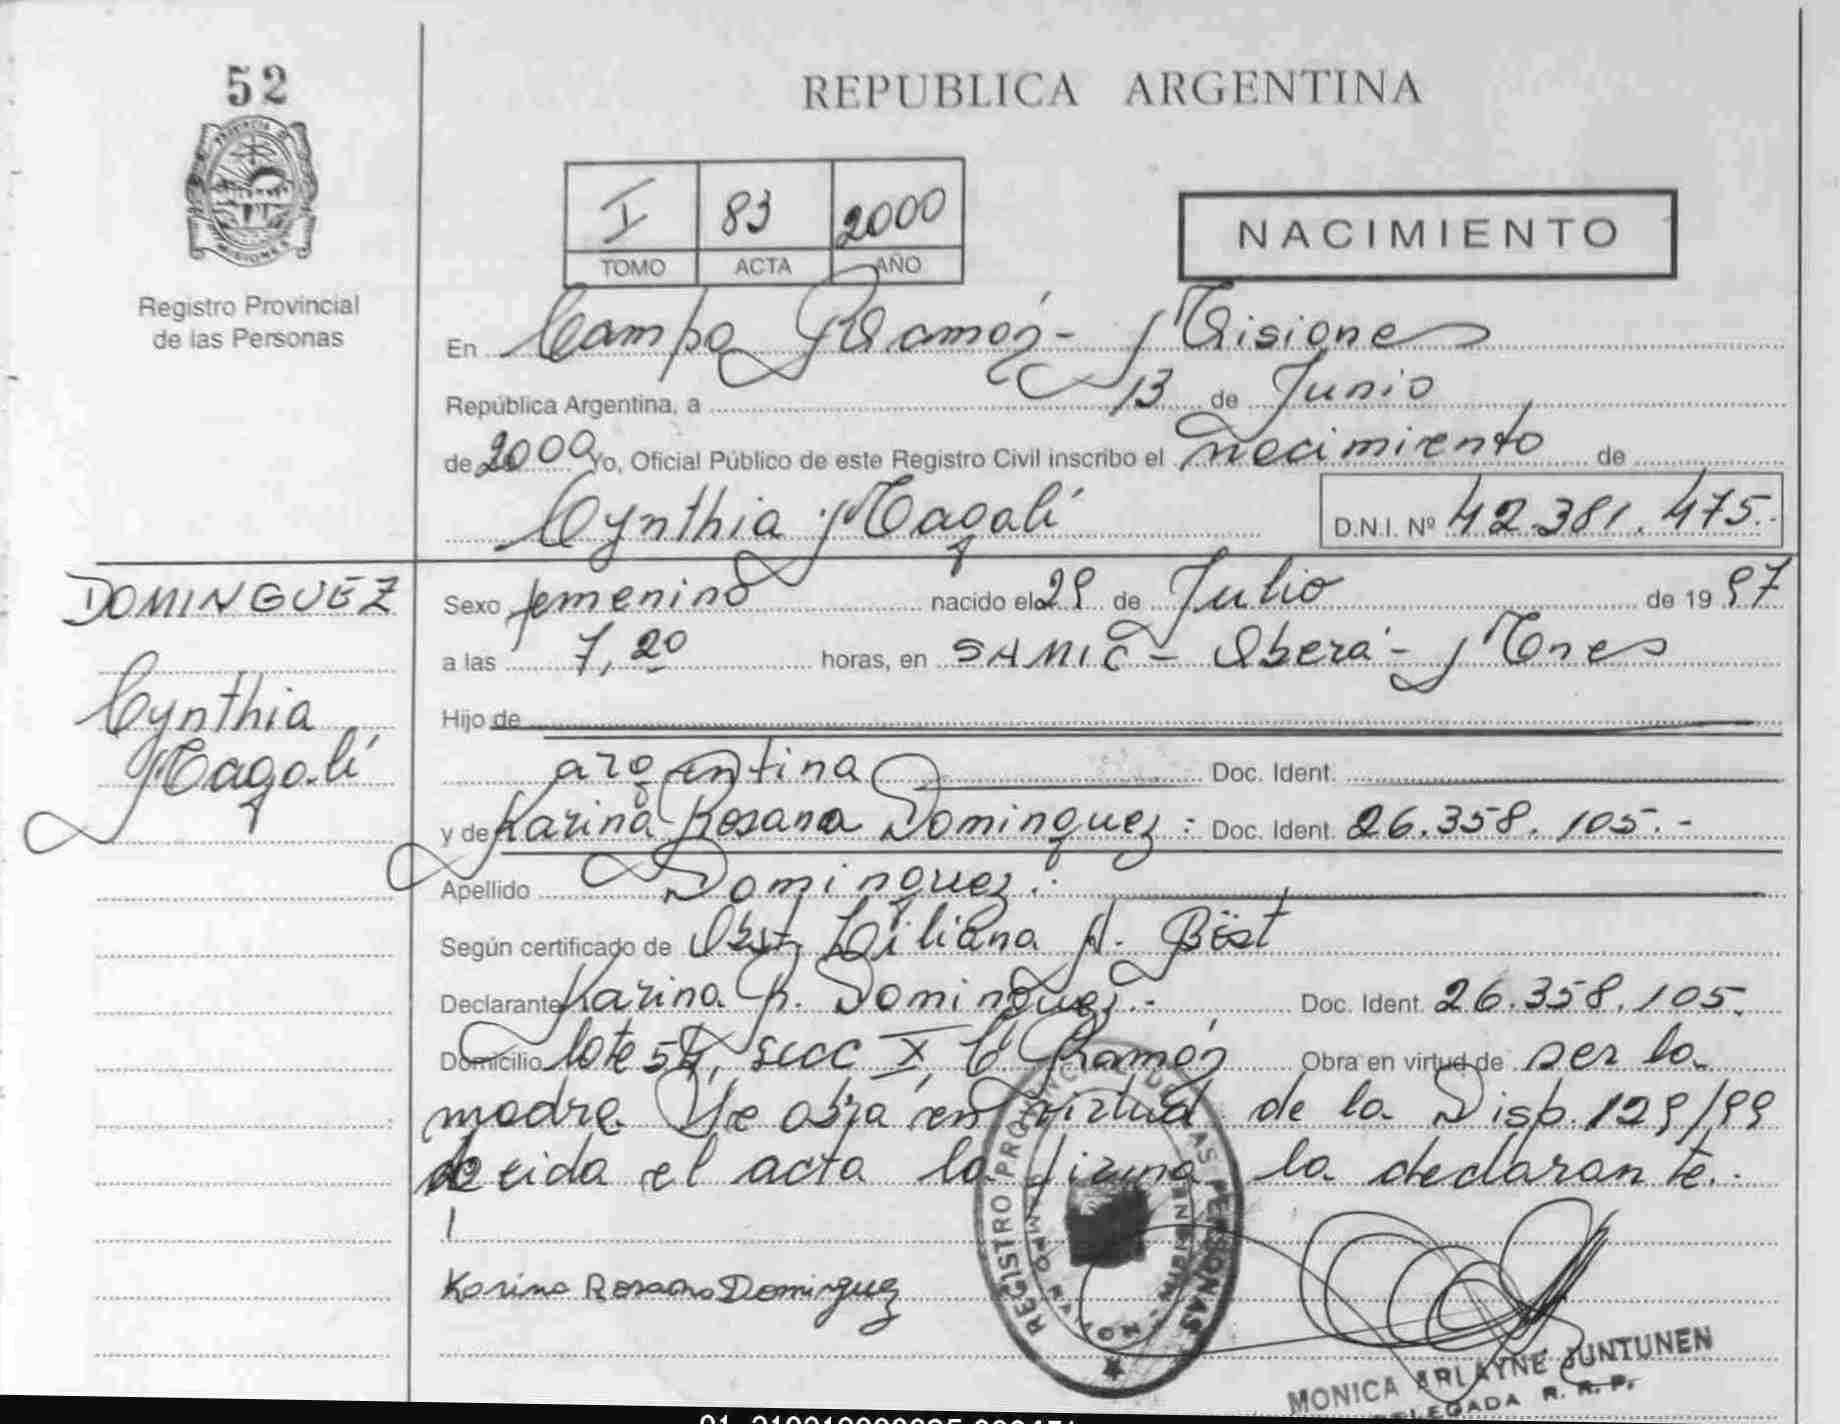 52
REPUBLICA ARGENTINA
I 83 2000
TOMO ACTA AÑO
NACIMIENTO
Registro Provincial
de las Personas
En Campo Ramón - Misiones
República Argentina, a 13 de Junio
de 2000 Yo, Oficial Público de este Registro Civil inscribo el nacimiento de
Cynthia Magalí D.N.I. Nº 42.381.475.-
DOMINGUEZ
Cynthia
Magalí
Sexo femenino nacido el 29 de Julio de 1997
a las 7,20 horas, en SAMIC - Oberá - Mnes
Hijo de
argentina Doc. Ident.
y de Karina Rosana Dominguez: Doc. Ident. 26.358.105.-
Apellido Dominguez.-
Según certificado de Obst. Liliana A. Bëst
Declarante Karina R. Dominguez.- Doc. Ident. 26.358.105.
Domicilio lote 54, secc X, C. Ramón Obra en virtud de ser la
madre. Se obra en virtud de la Disp. 129/99
Leida el acta la firma la declarante.-
Karina Rosana Dominguez
REGISTRO PROVINCIAL DE LAS PERSONAS
CAMPO RAMON - MISIONES
MONICA ARLAYNE JUNTUNEN
DELEGADA R. R. P.